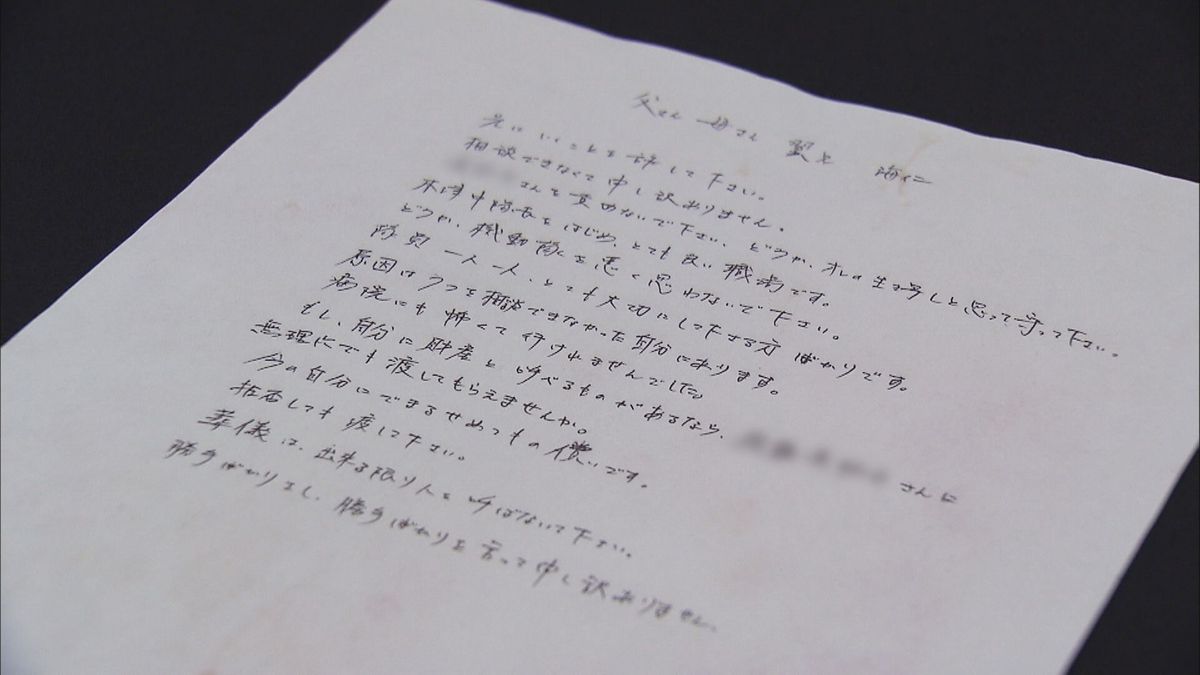 父さん 母さん 翼と 海仁
先にいくことを許して下さい。
相談できなくて申し訳ありません。
さんを責めないで下さい。どうか、オレの生き写しと思って守って下さい。
木澤中隊長をはじめ、とても良い職場です。
どうか、機動隊を悪く思わないで下さい。
隊員一人一人、とても大切にして下さる方ばかりです。
原因はうつを相談できなかった自分にあります。
病院にも怖くて行けれませんでした。
もし、自分に財産と呼べるものがあるなら、 さんに
無理にでも渡してもらえませんか。
今の自分にできるせめてもの償いです。
拒否しても渡して下さい。
葬儀は、出来る限り人を呼ばないで下さい。
勝手ばかりをし、勝手ばかりを言って申し訳ありません。